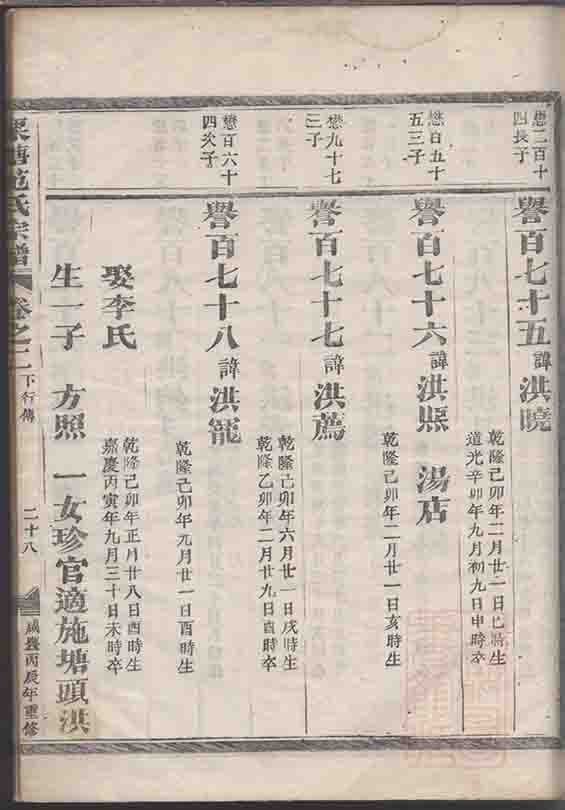 懋二百十
四長子
譽百七十五諱洪曉
乾隆己卯年二月廿一日巳時生
道光辛卯年九月初九日申時卒
懋百五十
五三子
譽百七十六諱洪熙 湯店
乾隆己卯年二月廿一日亥時生
懋九十七
三子
譽百七十七諱洪薦
乾隆己卯年六月廿一日戌時生
乾隆乙卯年二月廿九日酉時卒
懋百六十
四次子
譽百七十八諱洪寵
乾隆己卯年九月廿一日酉時生
娶李氏
乾隆己卯年正月廿八日酉時生
嘉慶丙寅年九月三十日未時卒
生一子 方照 一女珍官適施塘頭洪
塘范氏宗譜 卷之二 下行傳 二十八 咸豐丙辰年重修